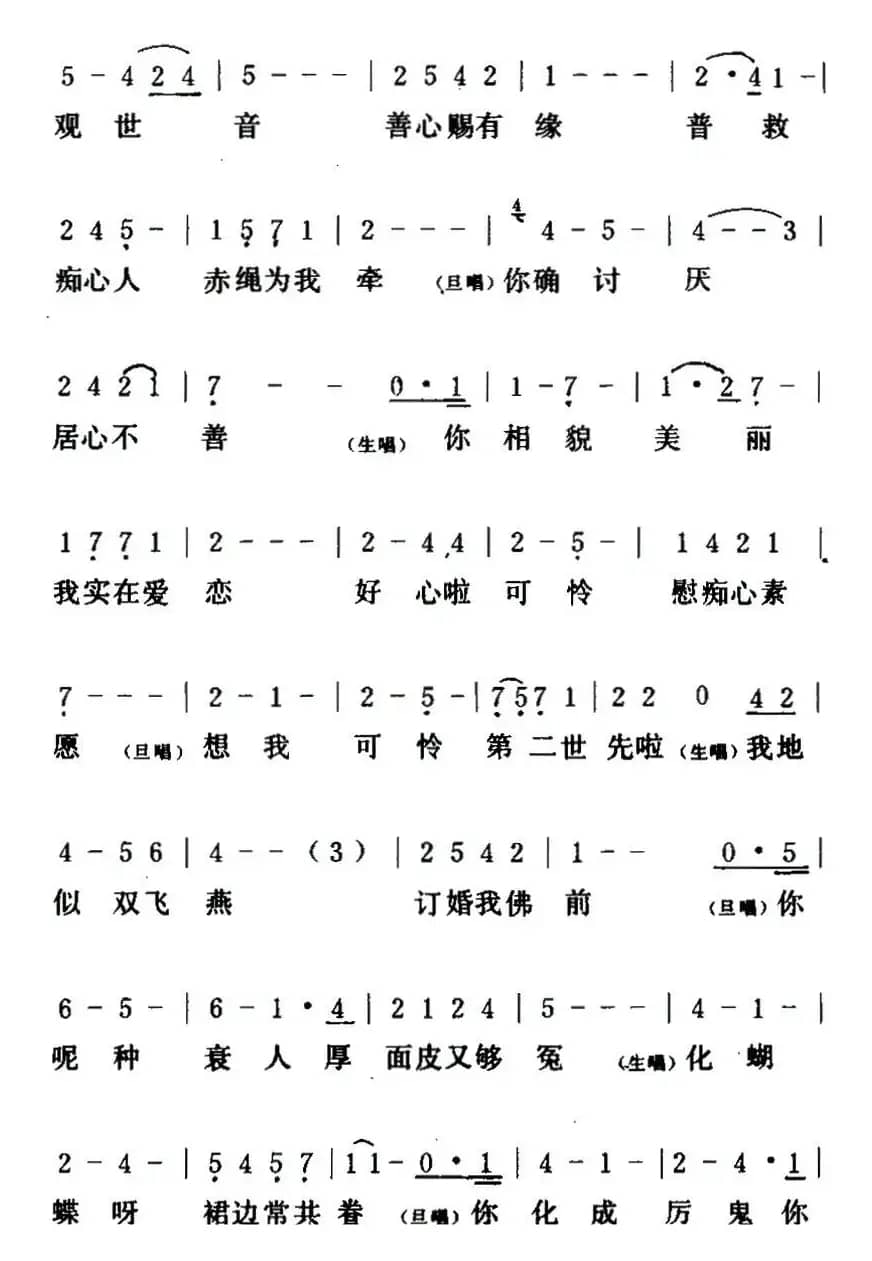 5 - 4 2 4 | 5 - - - | 2 5 4 2 | 1 - - - | 2 · 4 1 - |
观世音 善心赐有缘 普救
2 4 5 - | 1 5 7 1 | 2 - - - | 4 4 - 5 - | 4 - - 3 |
痴心人 赤绳为我牵 (旦唱)你确讨厌
2 4 2 1 | 7 - - 0 · 1 | 1 - 7 - | 1 · 2 7 - |
居心不善 (生唱)你相貌美丽
1 7 7 1 | 2 - - - | 2 - 4 4 | 2 - 5 - | 1 4 2 1 |
我实在爱恋 好心啦可怜 慰痴心素
7 - - - | 2 - 1 - | 2 - 5 - | 7 5 7 1 | 2 2 0 4 2 |
愿 (旦唱)想我可怜第二世先啦(生唱)我地
4 - 5 6 | 4 - - (3) | 2 5 4 2 | 1 - - 0 · 5 |
似双飞燕 订婚我佛前 (旦唱)你
6 - 5 - | 6 - 1 · 4 | 2 1 2 4 | 5 - - - | 4 - 1 - |
呢种衰人厚面皮又够冤 (生唱)化蝴
2 - 4 - | 5 4 5 7 | 1 1 - 0 · 1 | 4 - 1 - | 2 - 4 · 1 |
蝶呀 裙边常共眷 (旦唱)你化成厉鬼你